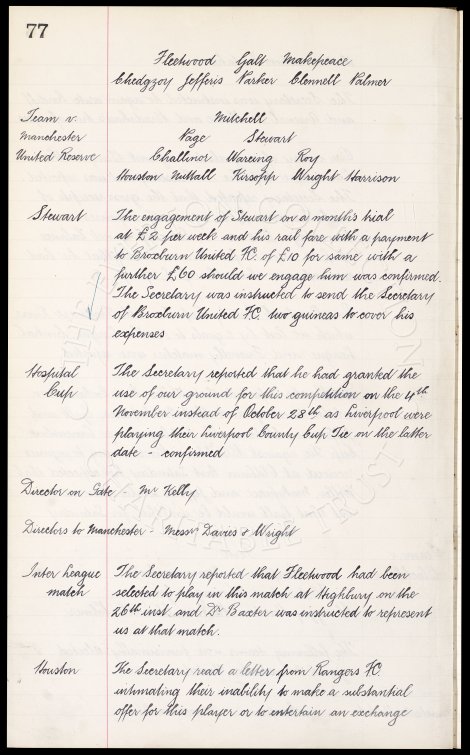 77
Fleetwood Galt Makepeace
Chedgzoy Jefferis Parker Clennell Palmer
Team v. Mitchell
Manchester Page Stewart
United Reserve Challinor Wareing Roy
Houston Nuttall Kirsopp Wright Harrison
Stewart The engagement of Stewart on a month's trial
at £2 per week and his rail fare with a payment
to Broxburn United F.C. of £10 for same with a
further £60 should we engage him was confirmed.
The Secretary was instructed to send the Secretary
of Broxburn United F.C. two guineas to cover his
expenses
Hospital The Secretary reported that he had granted the
Cup use of our ground for this competition on the 4th
November instead of October 28th as Liverpool were
playing their Liverpool County Cup Tie on the latter
date - confirmed
Director on Gate - Mr Kelly
Directors to Manchester - Messrs Davies & Wright
Inter League The Secretary reported that Fleetwood had been
match selected to play in this match at Highbury on the
26th inst. and Dr Baxter was instructed to represent
us at that match.
Houston The Secretary read a letter from Rangers F.C.
intimating their inability to make a substantial
offer for this player or to entertain an exchange